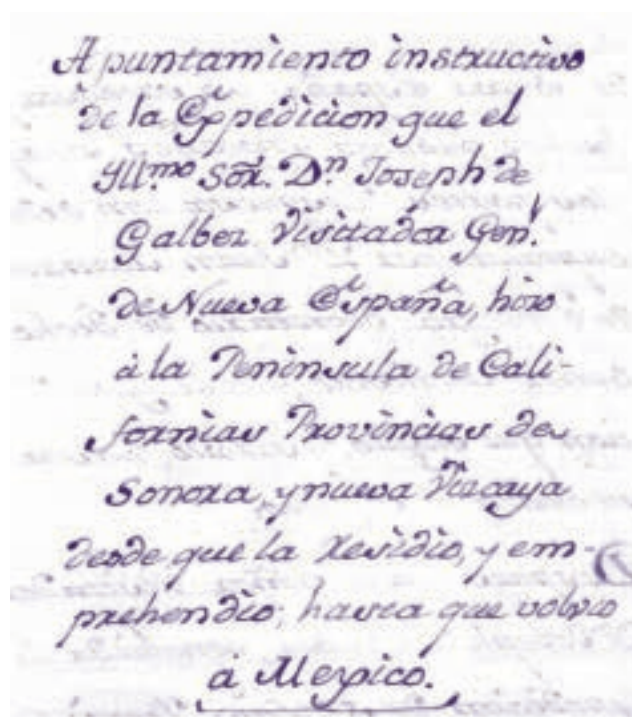 Apuntamiento instructivo
de la Expedicion que el
Yll.mo Sor. Dn Joseph de
Galbez Visitador Gen.l
de Nueva España, hizo
à la Peninsula de Cali-
fornias Provincias de
Sonora, y nueva Vizcaya
desde que la residio, y em-
prehendio; hasta que volvio
á Mexico.